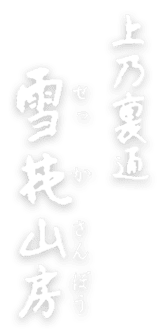 上乃裏通
雪花山房
せっかさんぼう